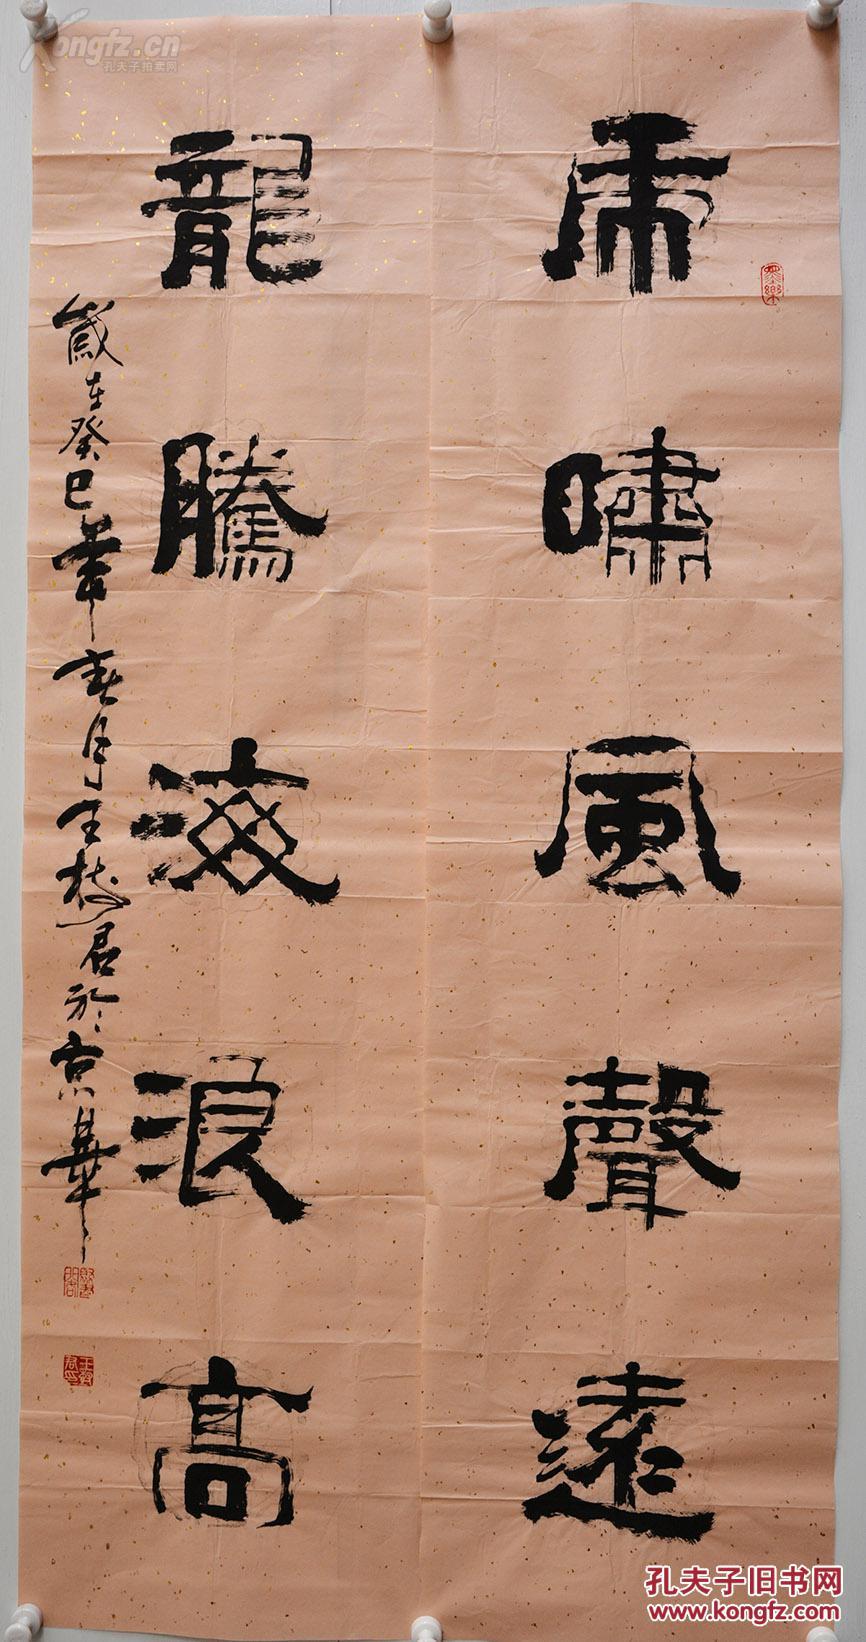 虎嘯風聲遠
龍騰海浪高
歲在癸巳年春月王樹君於京華
Kongfz.cn
孔夫子拍卖网
孔夫子旧书网
www.kongfz.com